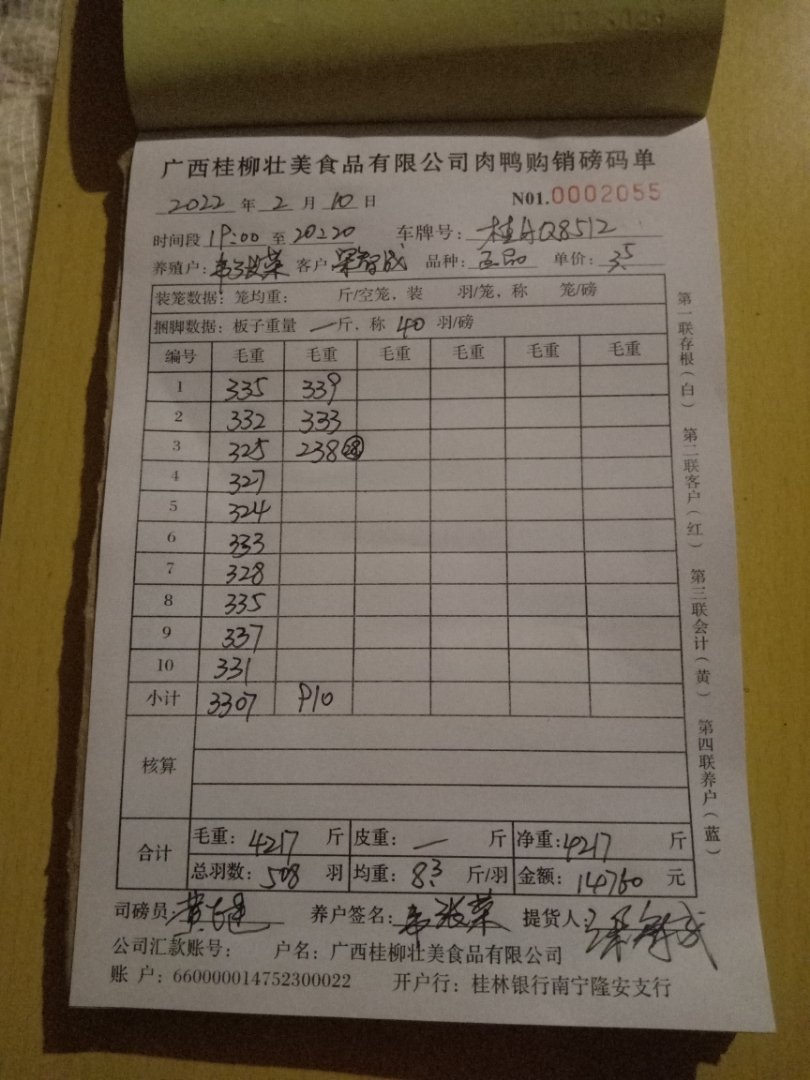 广西桂柳壮美食品有限公司肉鸭购销磅码单
2022 年 2 月 10 日 N01.0002055
时间段 19:00 至 20:20 车牌号: 桂AQ8512
养殖户: 客户 梁智成 品种: 正品 单价: 3.5
装笼数据: 笼均重: 斤/空笼, 装 羽/笼, 称 笼/磅
捆脚数据: 板子重量 一 斤, 称 40 羽/磅
编号 毛重 毛重 毛重 毛重 毛重 毛重
1 335 339
2 332 333
3 325 238 28
4 327
5 324
6 333
7 328
8 335
9 337
10 331
小计 3307 910
核算
合计 毛重: 4217 斤 皮重: 一 斤 净重: 4217 斤
总羽数: 508 羽 均重: 8.3 斤/羽 金额: 14760 元
司磅员: 养户签名: 提货人: 梁智成
公司汇款账号: 户名: 广西桂柳壮美食品有限公司
账 户: 660000014752300022 开户行: 桂林银行南宁隆安支行
第一联存根(白) 第二联客户(红) 第三联会计(黄) 第四联养户(蓝)